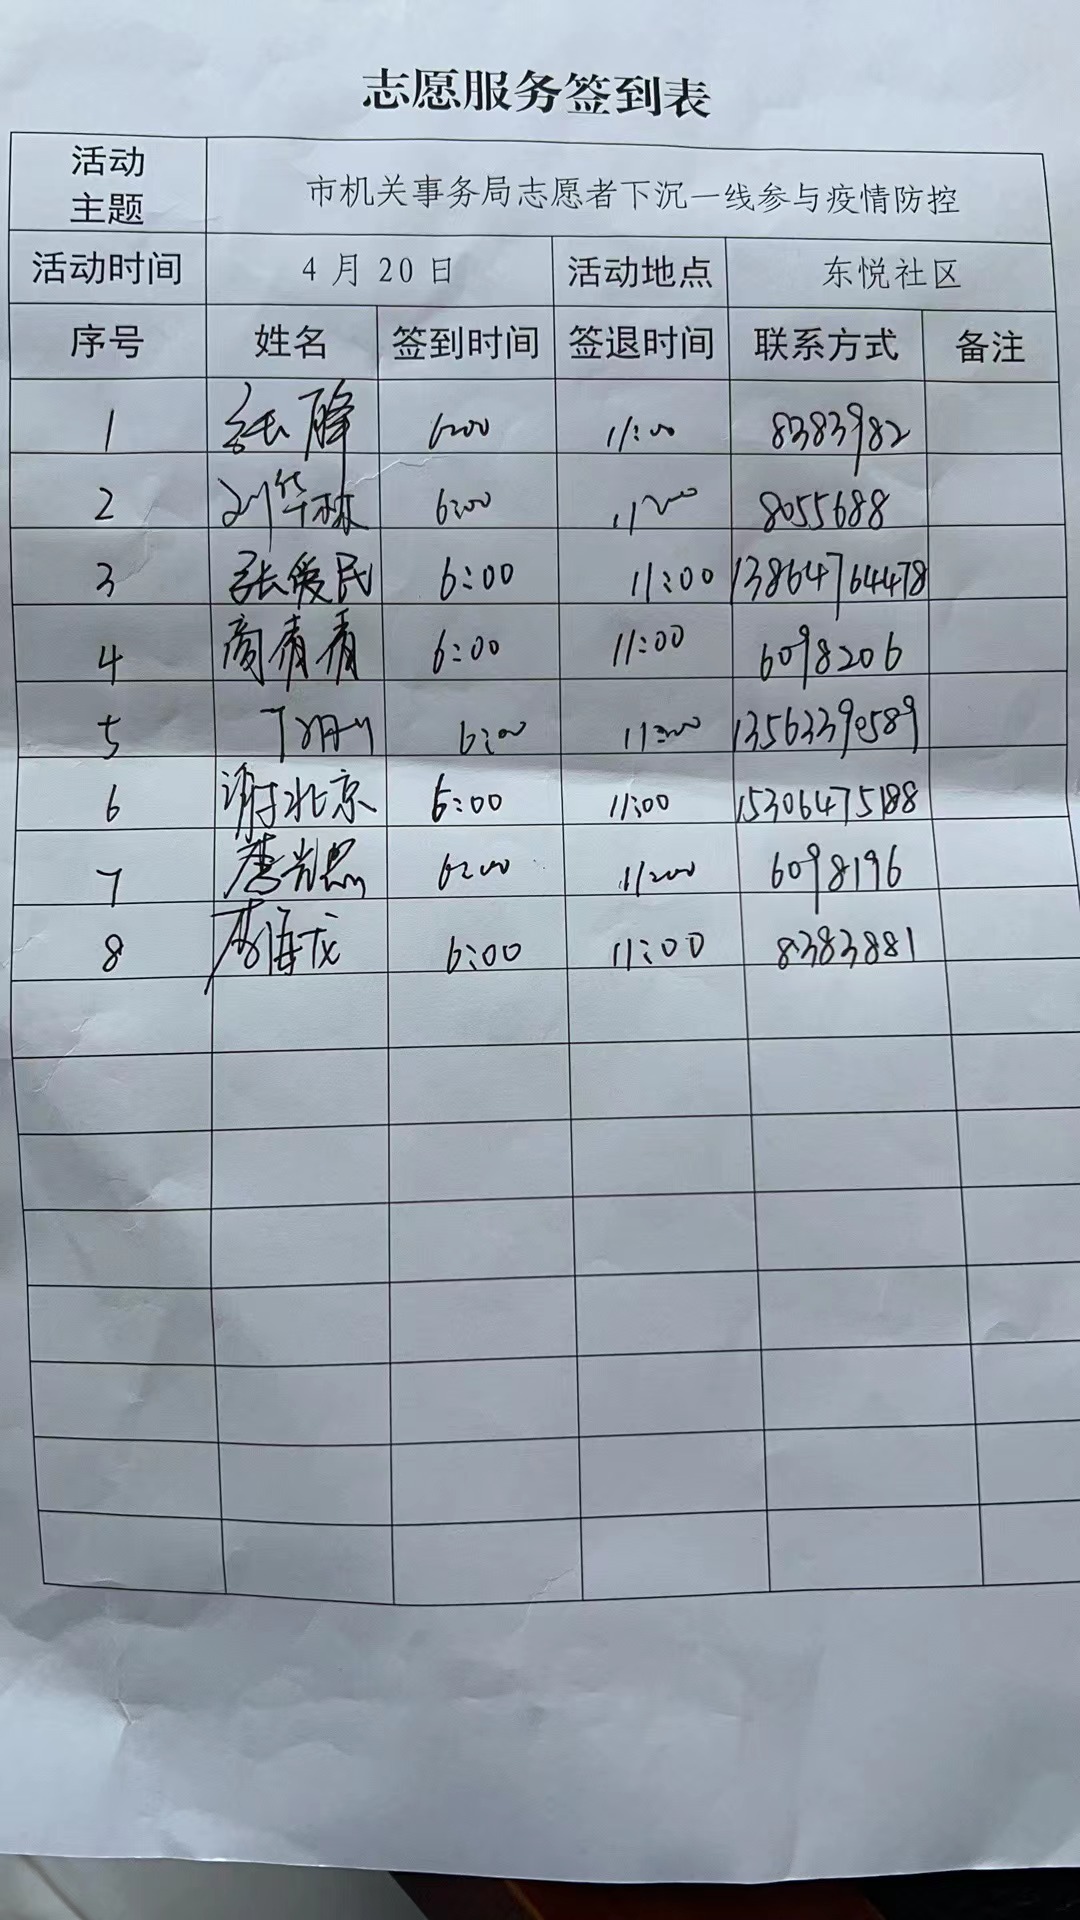 志愿服务签到表
活动主题 市机关事务局志愿者下沉一线参与疫情防控
活动时间 4月20日 活动地点 东悦社区
序号 姓名 签到时间 签退时间 联系方式 备注
1 张 6:00 11:00 8383982
2 刘华林 6:00 11:00 8055688
3 张爱民 6:00 11:00 13864764478
4 商青青 6:00 11:00 6098206
5 6:00 11:00 13563390589
6 谢北京 6:00 11:00 15306475188
7 6:00 11:00 6098196
8 李海龙 6:00 11:00 8383881